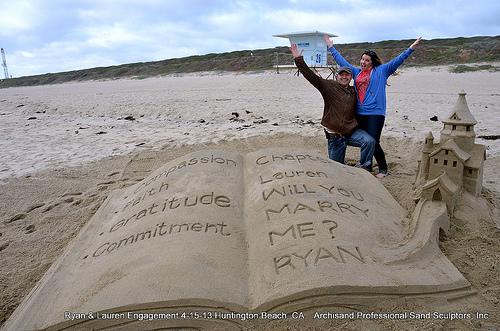 Compassion
• Faith
• Gratitude
• Commitment
Chapter
Lauren
WiLL YOU
MARRY
ME?
RYAN
Ryan & Lauren Engagement 4-15-13 Huntington Beach, CA Archisand Professional Sand Sculptors, Inc